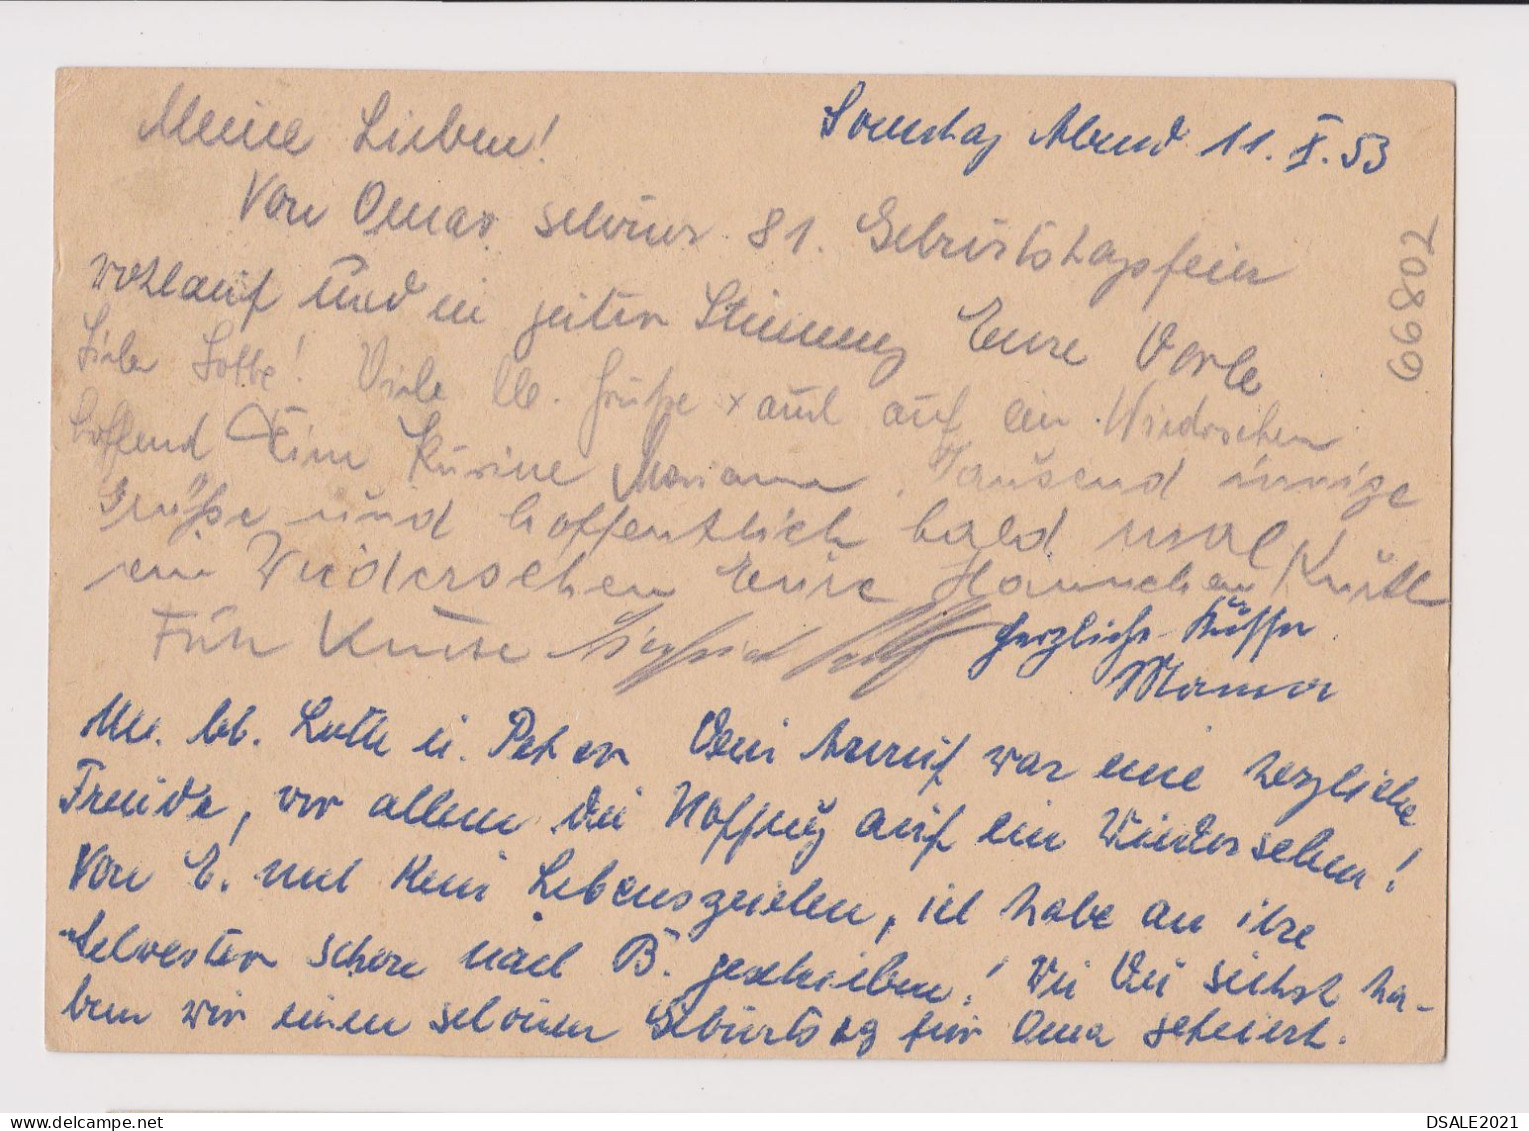 Meine Lieben!
Sonntag Abend 11. X. 53
Von Omas schöner 81. Geburtstagsfeier
wohlauf und in guter Stimmung Eure
Liebe Lotte! Viele lb. Grüße + auf ein Wiedersehen
hoffend Deine Marianne. Tausend innige
Grüße und hoffentlich bald mal
ein Wiedersehen Eure Hannchen
66802
Herzliche Küsse
Mama
lb. Lotte u. Peter Dein Anruf war eine herzliche
Freude, vor allem die Hoffnung auf ein Wiedersehen!
Von E. noch kein Lebenszeichen, ich habe an ihre
Schwester schon nach B. geschrieben! Wie Du siehst ha-
ben wir einen schönen Geburtstag für Oma gefeiert.
DSALE2021